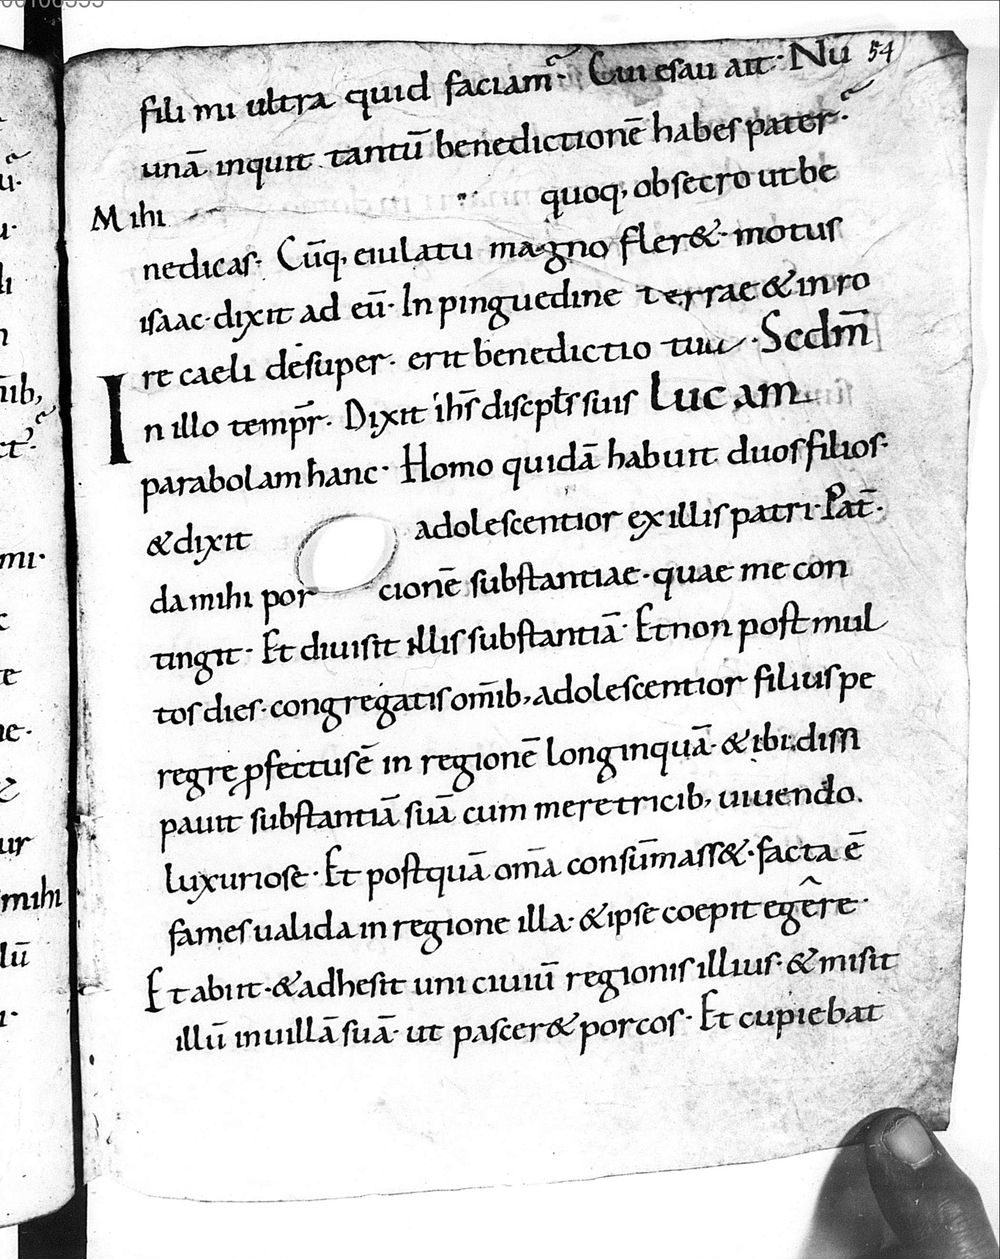 54
fili mi ultra quid faciam· Cui esau ait· Nū
unā inquit tantū benedictionē habes pater·
Mihi quoq, obsecro ut be
nedicas· Cūq, eiulatu magno fler& motus
isaac· dixit ad eū· In pinguedine terrae & in ro
re caeli desuper· erit benedictio tua· Secdm̄
In illo temp̄r· Dixit ihs̄ discipl̄s suis Lucam
parabolam hanc· Homo quidā habuit duos filios·
& dixit adolescentior ex illis patri· Pat̄·
da mihi por cionē substantiae· quae me con
tingit· Et diuisit illis substantiā· Et non post mul
tos dies· congregatis om̄ib, adolescentior filius pe
regre pfectus ē in regionē longinquā· & ibi dissi
pauit substantiā suā cum meretricib, uiuendo
luxuriose· Et postquā om̄a consūmass&· facta ē
fames ualida in regione illa· & ipse coepit egēre·
Et abiit· & adhesit uni ciuiū regionis illius· & misit
illū in uillā suā· ut pascer& porcos· Et cupiebat